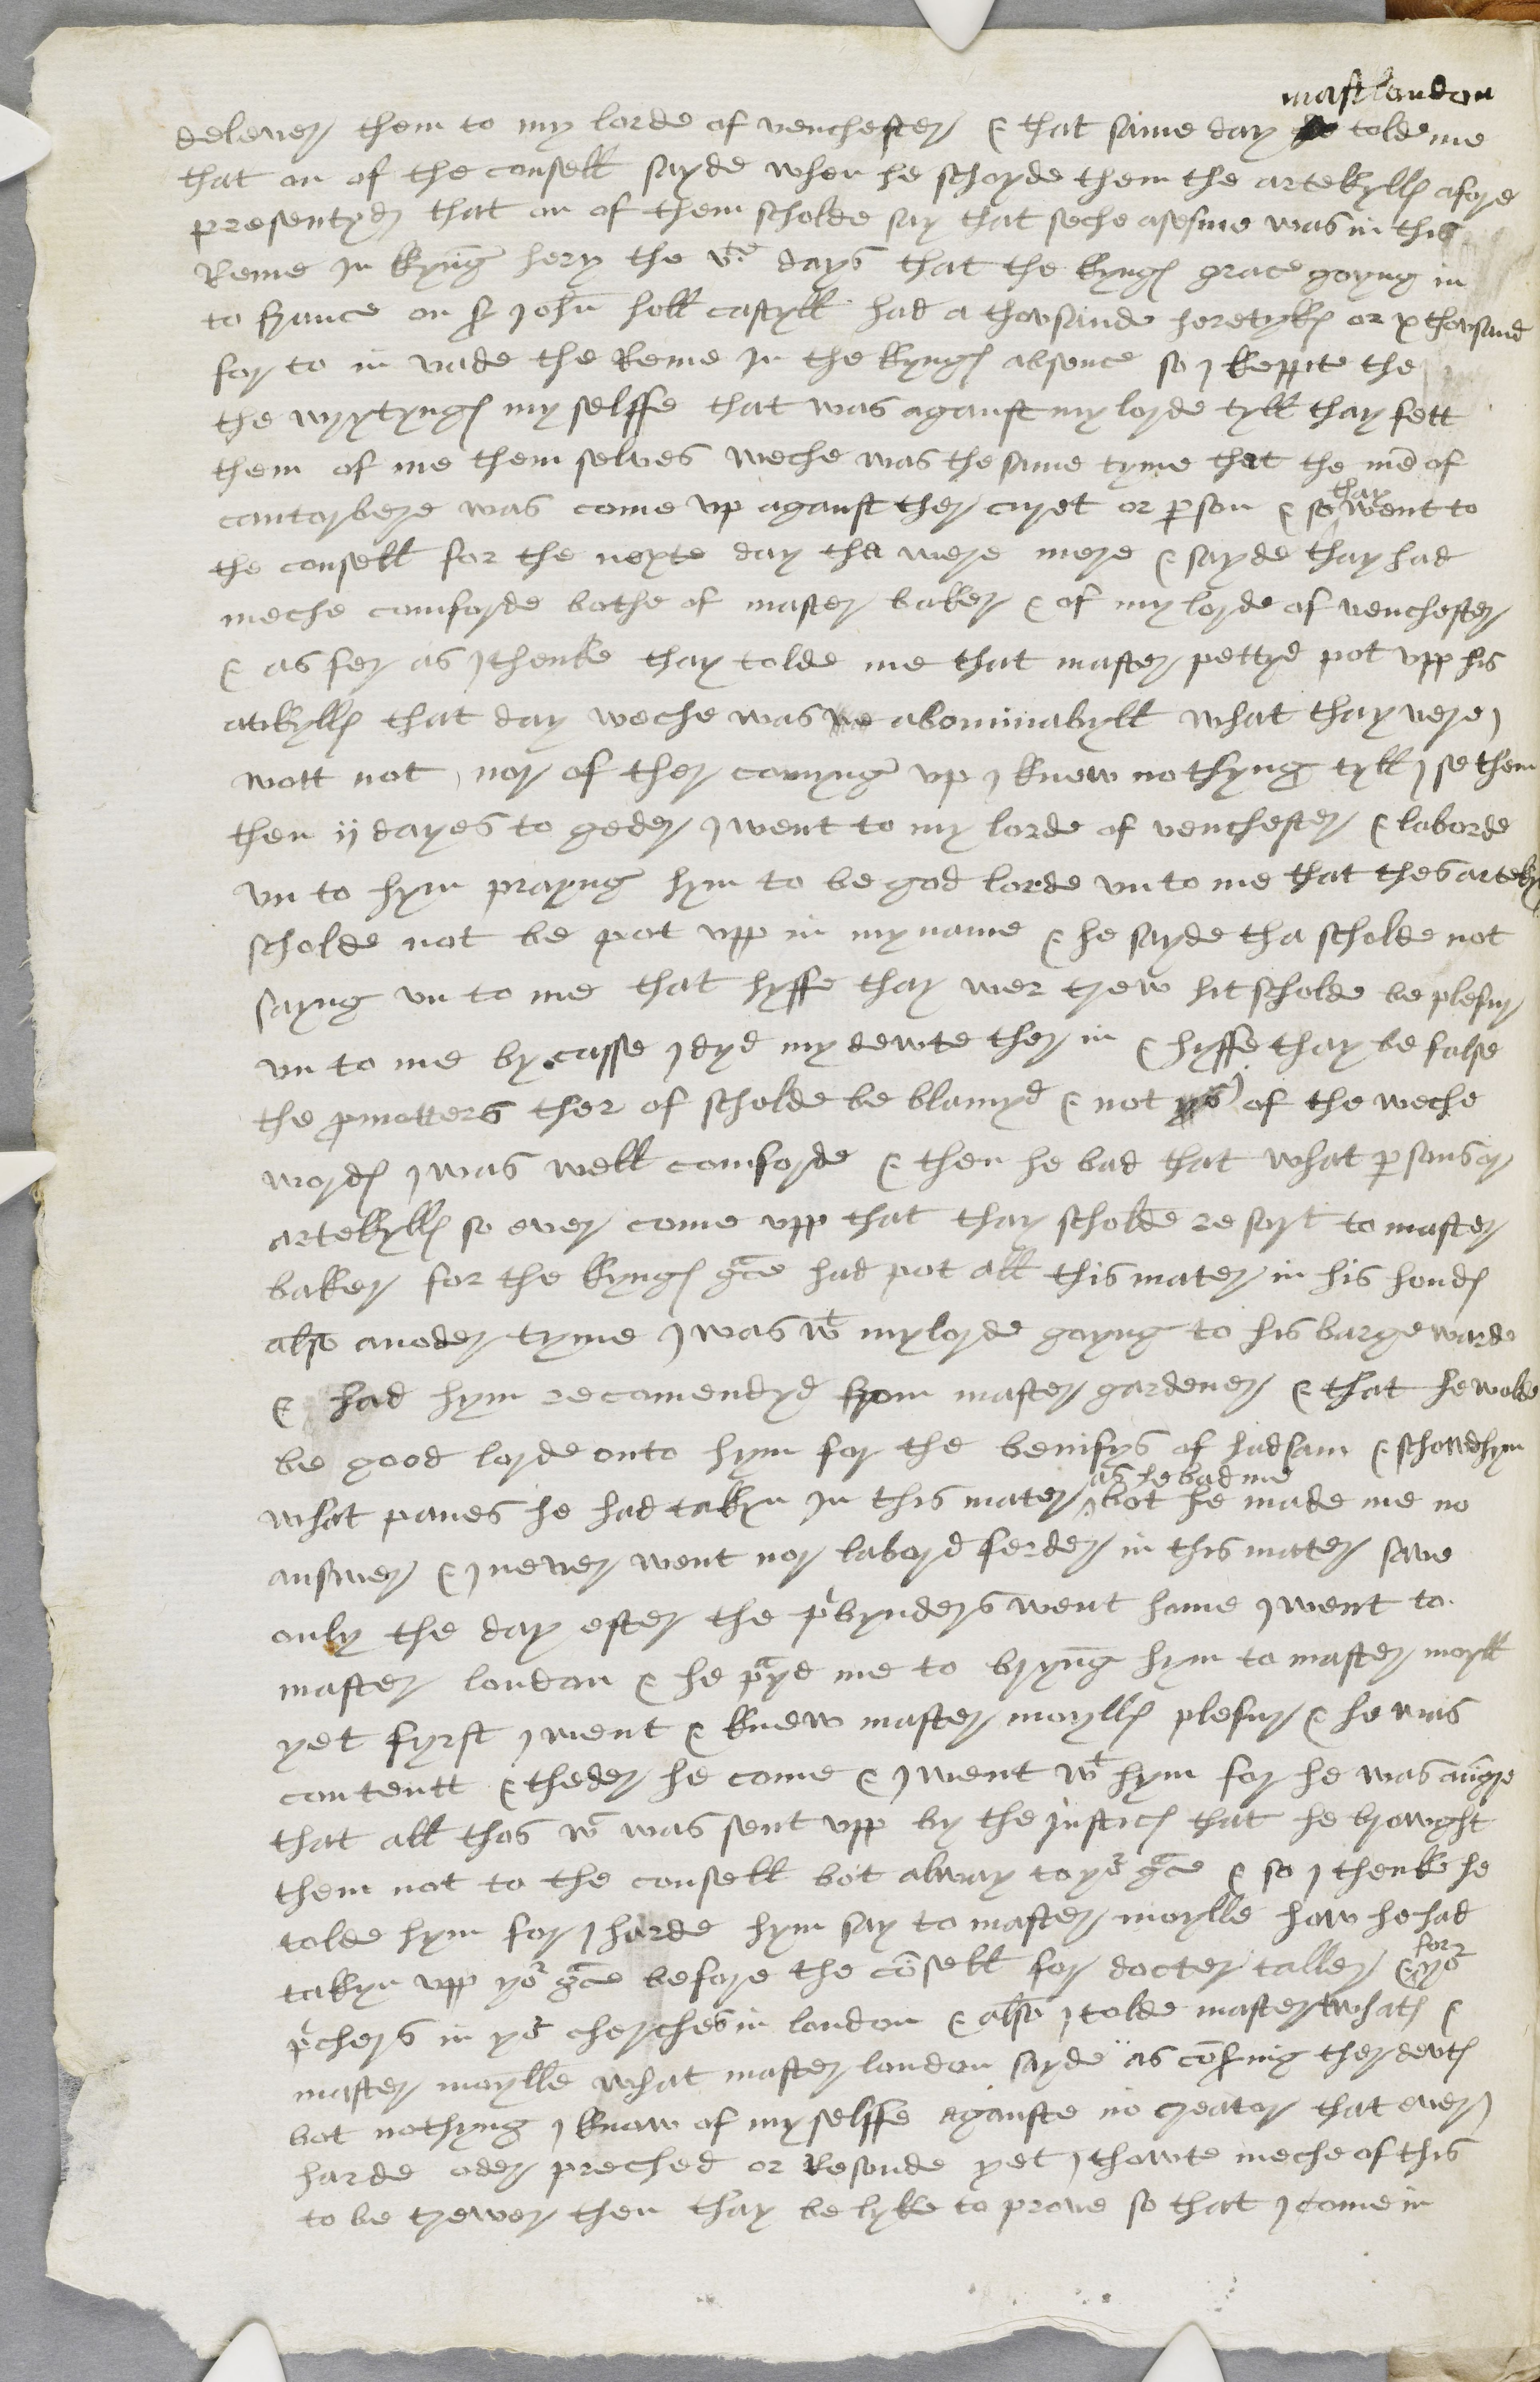 mast london
delever them to my lorde of venchester & that same day tolde me
that on of the consell sayde when he schoyde them the artekylles afore
presentyd that on of them scholde say that seche a sesme was in this
Reme In kyng hery the vte days that the kynges grace goyng in
to france on sr John holl castyll had a thovsande heretykes or x thovsand
for to in vade the Reme In the kynges absence so I keppte the
the wrytynges my selffe that was aganst my lorde tyll thay fett
them of me them selves weche was the same tyme that the men of
thay
cantorbere was come vp aganst ther curet or person & so went to
the consell for the nexte day tha were mere & sayde thay had
meche comforde bothe of master baker & of my lorde of venchester
& as fer as I thenke thay tolde me that master pettyd pot vpp his
atikylles that day weche was abominabyll what thay vere I
wott not nor of ther comyng vp I knew nothyng tyll I se them
then ij dayes to geder I went to my lorde of venchester & laborde
vn to hym prayng hym to be god lorde vnto me that thes arteky
scholde not be pot vpp in my name & he sayde tha scholde not
sayng vn to me that hyffe thay wer trew hit scholde be plesur
vn to me by casse I dyd my dewte ther in & hyffe thay be false
the promotters ther of scholde be blamyd & not yo of the weche
wordes I was well comforde & then he bad that what persons or
artekylles so ever come vpp that thay scholde resort to master
baker for the kynges grace had pot all this mater in his hondes
also anoder tyme I was wt my lorde goyng to his barge warde
& had hym recomendyd from master gardener & that he wolde
be good lorde onto hym for the benifys of hadsam & schowd hym
as he bad me
what panes he had takyn In this mater bot he made me no
answer & I never went nor labord ferder in this mater save
only the day efter the prbynders went home I went to
master london & he prayd me to bryng hym to master moyll
yet fyrst I went & knew master moylles plesur & he was
contentt & theder he come & I went wt hym for he was angre
that all thos wt was sent vpp by the justices that he browght
them not to the consell bot alway to yor grace & so I thenke he
tolde hym for I harde hym say to master moylle how he had
for
takyn vpp yor grace before the consell for docter taller & yor
prchers in yor cherches in london & also I tolde master thwates &
master moylle what master london sayde as conserning ther devtes
bot nothyng I know of my selffe aganste no creator that ever I
harde oder preched or Resonde yet I thowte meche of this
to be trewer then thay be lyke to prove so that I come in